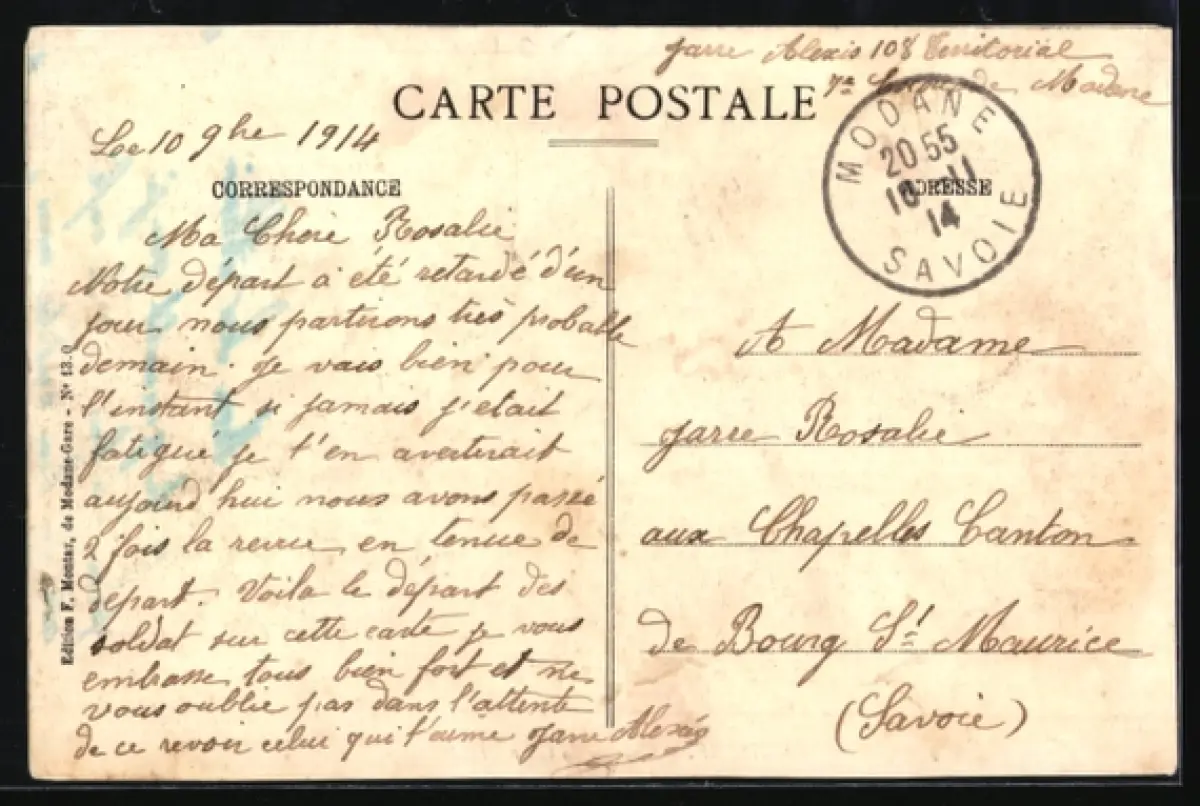 Jarre Alexis 108 Territorial
7e de Modane
CARTE POSTALE
Le 10 9bre 1914
MODANE
20 55
10 -11
14
SAVOIE
CORRESPONDANCE
ADRESSE
Ma Chere Rosalie
Notre départ a été retardé d'un
jour nous partirons très probable
demain. Je vais bien pour
l'instant si jamais j'etait
fatigué je t'en avertirait
aujourd hui nous avons passé
2 fois la revue en tenue de
départ. Voila le départ des
soldat sur cette carte je vous
embrasse tous bien fort et ne
vous oublie pas dans l'attente
de ce revoir celui qui t'aime Jarre Alexis
A Madame
Jarre Rosalie
aux Chapelles Canton
de Bourg St Maurice
(Savoie)
Edition F. Montaz, de Modane-Gare - N° 13.0